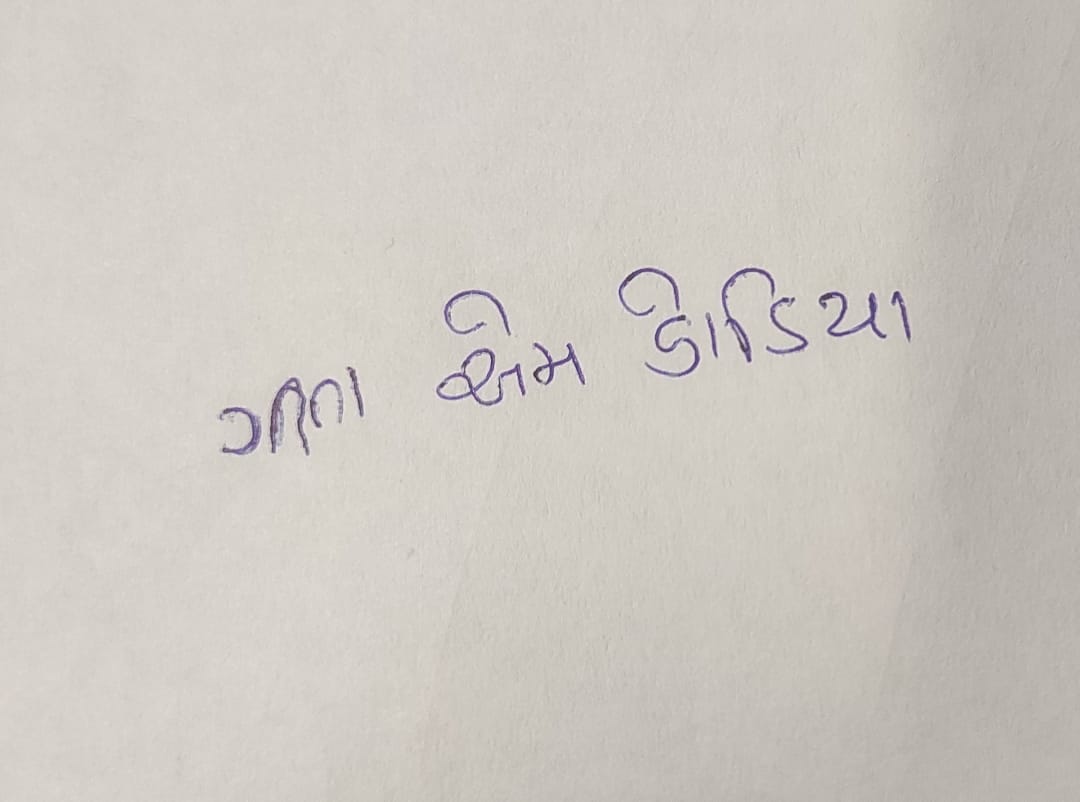 ગીતા એમ ડોડિયા